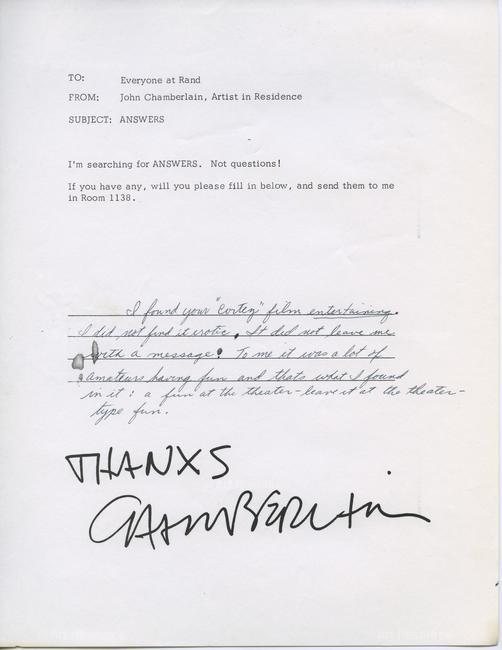 TO: Everyone at Rand
FROM: John Chamberlain, Artist in Residence
SUBJECT: ANSWERS
I'm searching for ANSWERS. Not questions!
If you have any, will you please fill in below, and send them to me
in Room 1138.
I found your "Cortez" film entertaining.
I did not find it erotic. It did not leave me
with a message. To me it was a lot of
amateurs having fun and thats what I found
in it: a fun at the theater-leave it at the theater-
type fun.
THANXS
CHAMBERLAIN